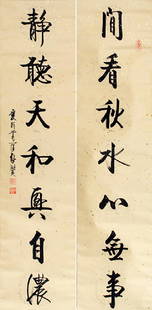 閒看秋水心無事
靜聽天和興自濃